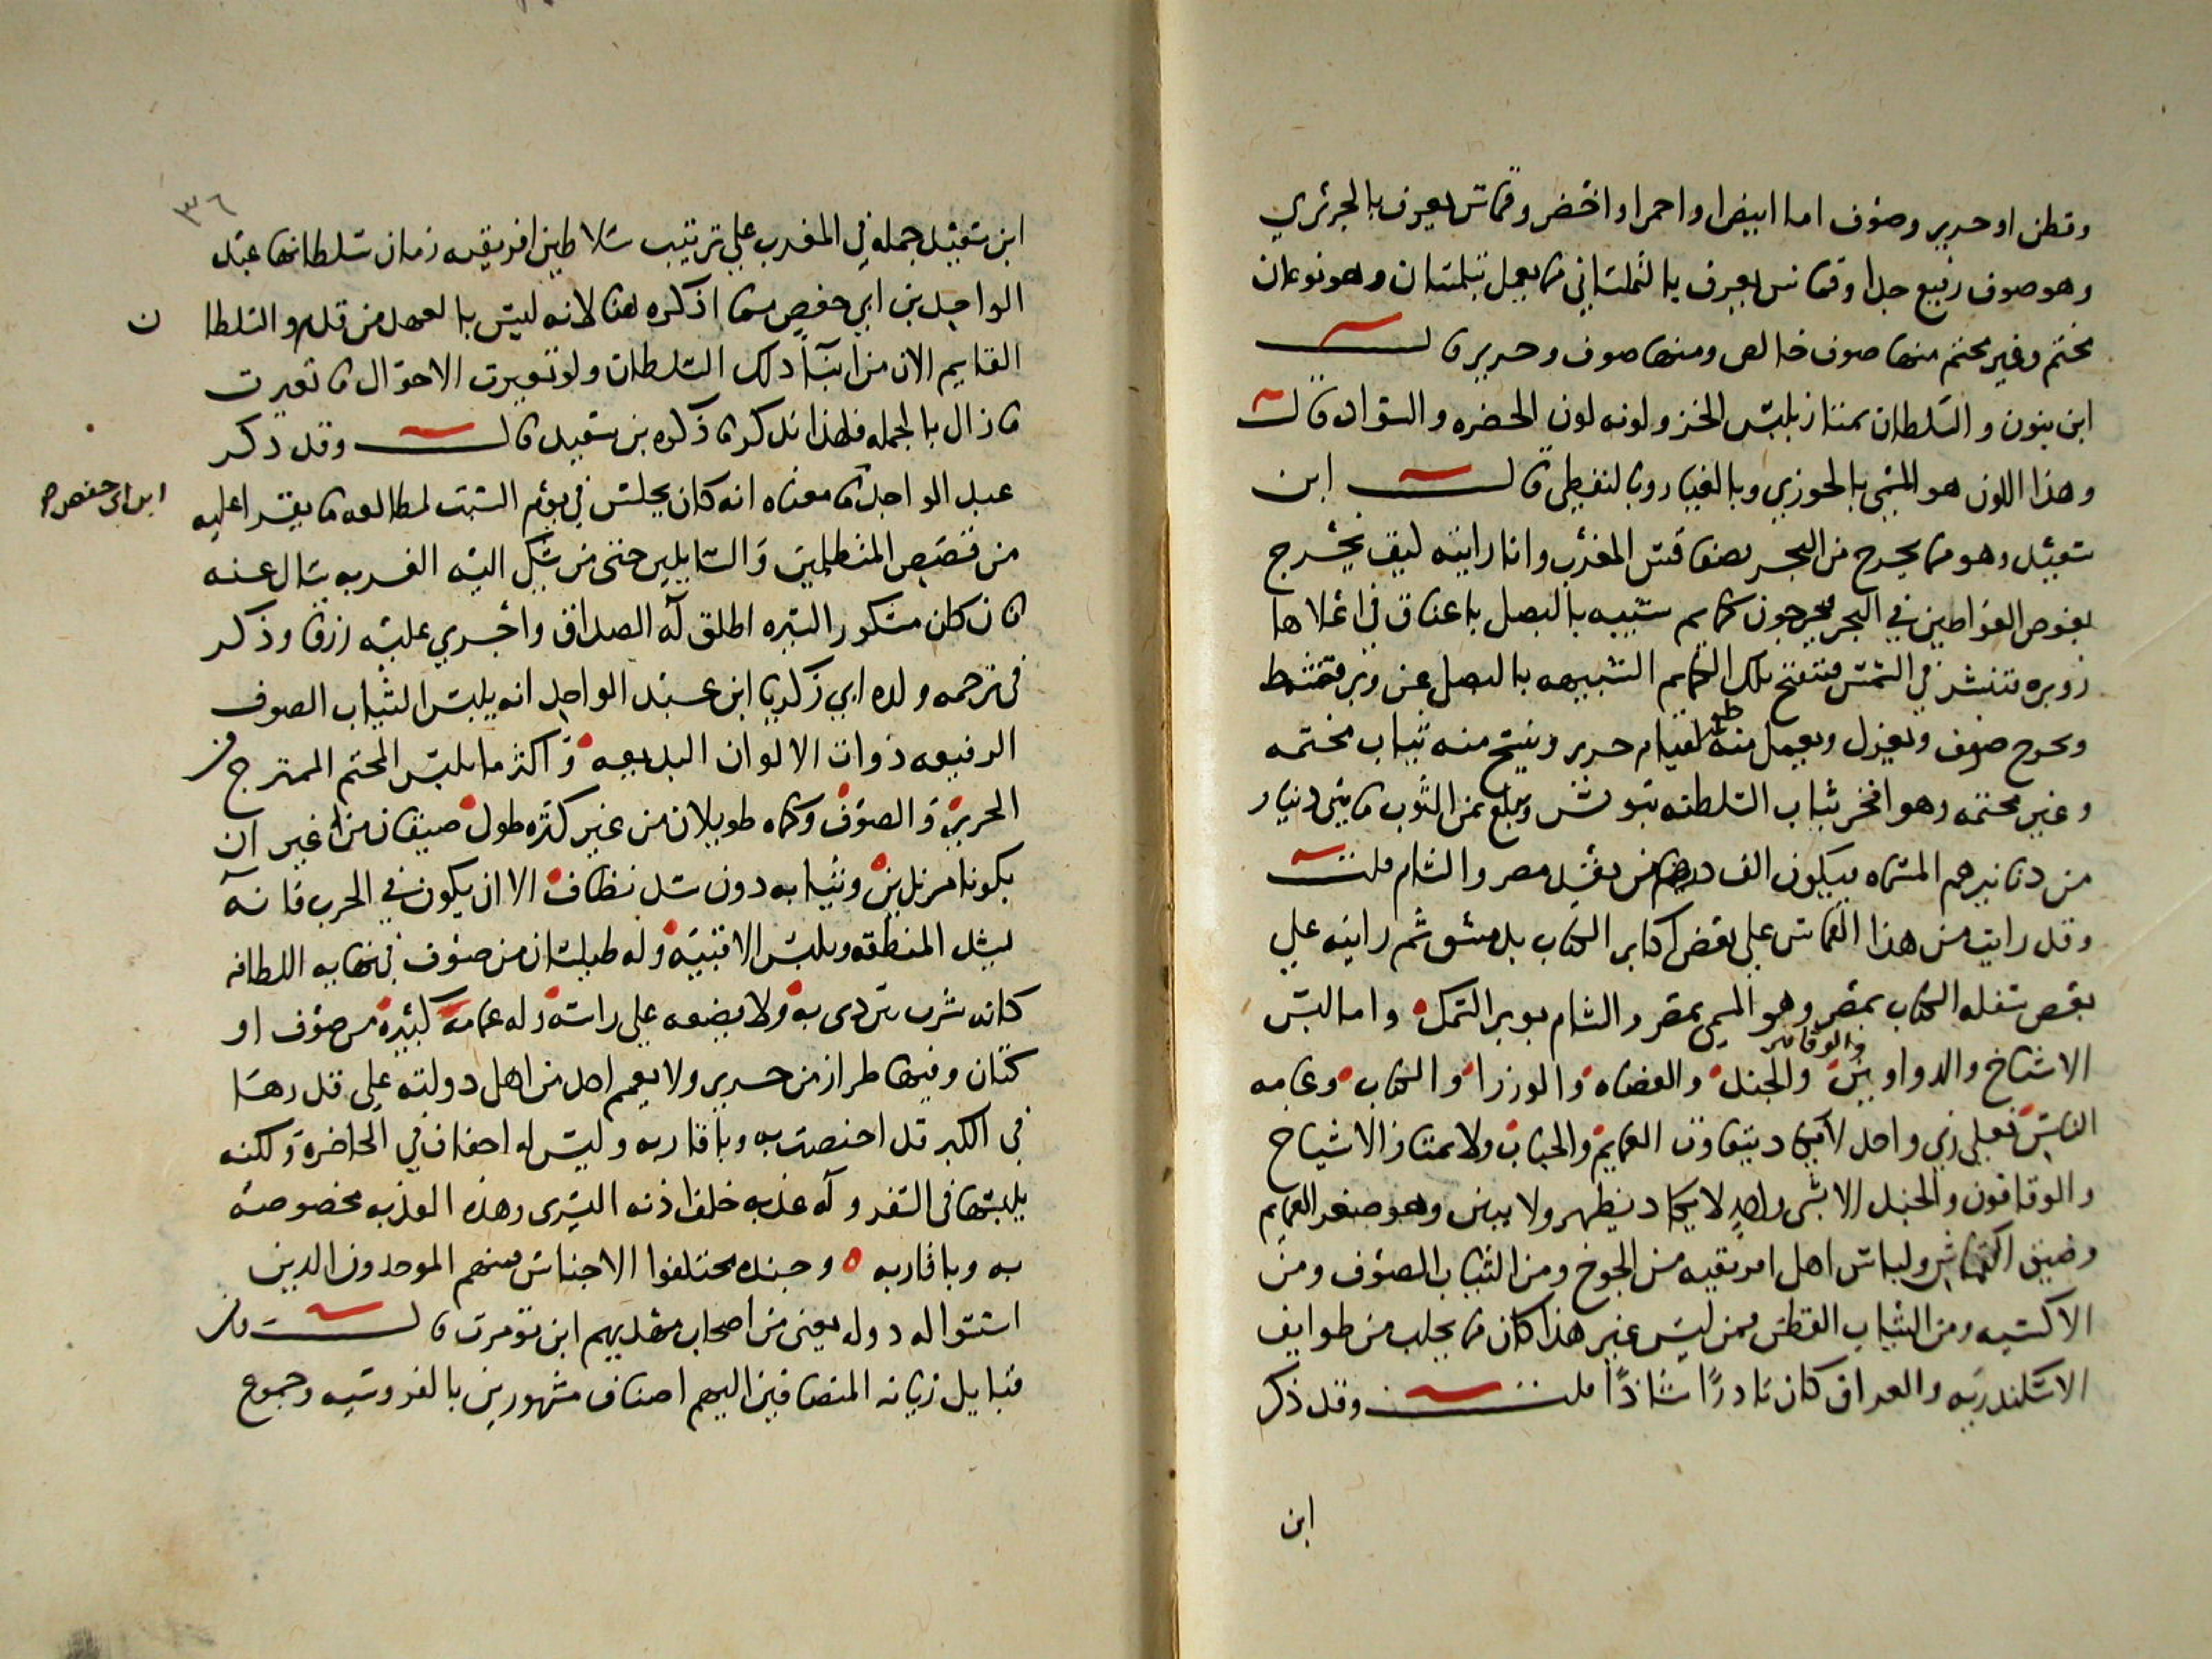 وقطن او حرير وصوف اما ابيض او احمر او اخضر وقماش يعرف بالجريري
وهو صوف رفيع جدا وقماش يعرف بالتلمساني مما يعمل بتلمسان وهو نوعان
مختم وغير مختم منها صوف خالص ومنها صوف وحرير قال
ابن بنون والسلطان يمتاز بلبس الخز ولونه لون الخضره والسواد قال
وهذا اللون هو المسمى بالجوزي وبالغيار وبالنفطي قال ابن
سعيد وهو مما يخرج من البحر بصفاقس المغرب وانا رايته كيف يخرج
يغوص الغواصين في البحر فيخرجون كمايم شبيه بالبصل باعناق في اعلاها
زويره تنشر في الشمس فتنفتح تلك الكمايم الشبيهه بالبصل عن وبر فيمشط
ويخرج صوف ويغزل ويعمل منه طعمه لقيام حرير وينسج منه ثياب مختمه
وغير مختمه وهو افخر ثياب السلطنه بتونس ويبلغ ثمن الثوب مايتي دينار
من دنانيرهم المسماه فيكون الف درهم من نقد مصر والشام قلت
وقد رايت من هذا القماش على بعض اكابر الكتاب بدمشق ثم رايته على
بعض سفله الكتاب بمصر وهو المسمى بمصر والشام بوبر السمك واما لبس
الاشياخ والدواوين والوقافين والجند والقضاه والوزرا والكتاب وعامه
الناس فعلى زي واحد لا يكاد يتفاوت العمايم والجباب ولا يمتاز الاشياخ
والوقافون والجند الا بشي واحد لا يكاد يظهر ولا يبين وهو صغر العمايم
وضيق القماش ولباس اهل افريقيه من الجوخ ومن الثياب الصوف ومن
الاكسيه ومن الثياب القطن فمن لبس غير هذا كان مما يجلب من طوايف
الاسكندريه والعراق كان نادرا شاذا قلت وقد ذكر
ابن
٣٦
ابن سعيد جمله في المغرب على ترتيب سلاطين افريقيه زمان سلطانها عبد
الواحد بن ابي حفص مما اذكره هنا لانه ليس بالعهد من قدم والسلطا ن
القايم الان من ابنا ذلك السلطان ولو تغيرت الاحوال ما تغيرت
ما زال بالجمله فلهذا نذكر ما ذكره بن سعيد قال وقد ذكر
عبد الواحد ما معناه انه كان يجلس في يوم السبت لمطالعه ما يقرا عليه
ابن ابي حفص صح
من قصص المتظلمين والسايلين حتى من شكى اليه الغربه سال عنه
فان كان مشكور السيره اطلق له الصداق واجري عليه رزقا وذكر
في ترجمه ولده ابي زكريا ابن عبد الواحد انه يلبس الثياب الصوف
الرفيعه ذوات الالوان البديعه واكثر ما يلبس المختم الممتزج من
الحرير والصوف وكماه طويلان من غير كثره طول ضيقان من غير ان
يكونا مزندين وثيابه دون شد نطاق الا ان يكون في الحرب فانه
يشد المنطقه ويلبس الاقبيه وله طيلسان من صوف في نهايه اللطافه
كانه شرب يتردى به ولا يضعه على راسه وله عمامه كبيره من صوف او
كتان وفيها طراز من حرير ولا يعمم احد من اهل دولته على قدرها
في الكبر قد اختصت به وباقاربه وليس له اخفاف في الحاضرة ولكنه
يلبسها في السفر وله عذبه خلف اذنه اليسرى وهذه العذبه مخصوصه
به وباقاربه وجنده مختلفوا الاجناس فمنهم الموحدون الذين
اسسوا له دوله يعني من اصحاب مهديهم ابن تومرت قال من
قبايل زناته المنضافين اليهم اصناف مشهورين بالفروسيه وجموع